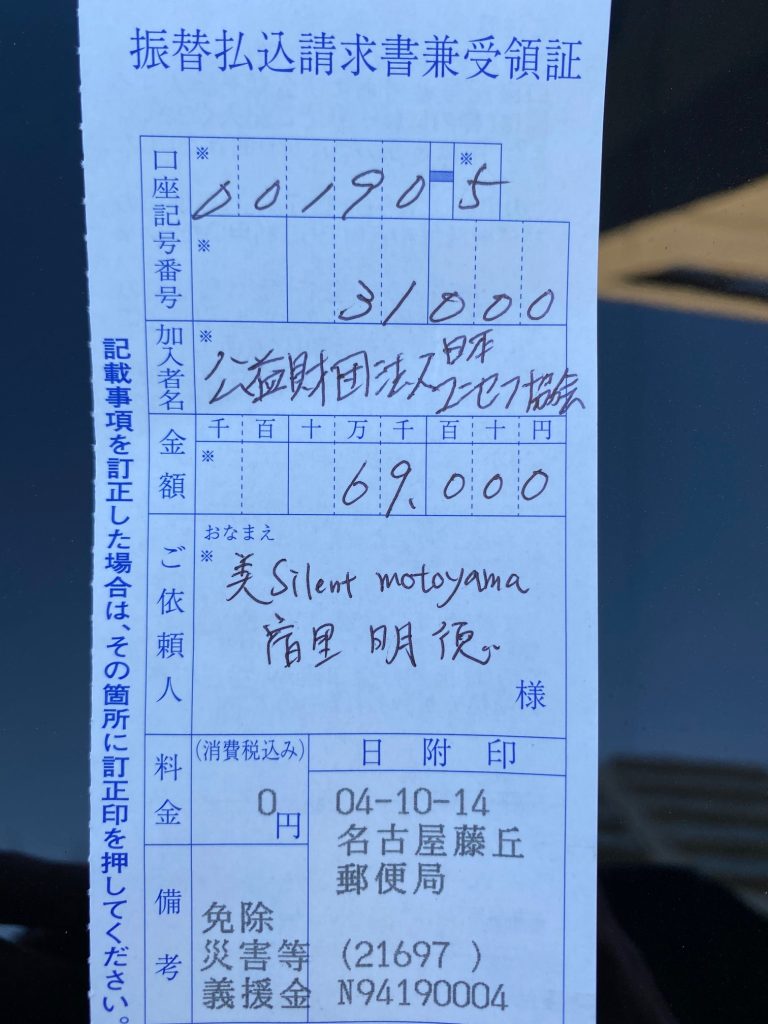 振替払込請求書兼受領証
口座記号番号
※ ※
00190-5
※
31000
加入者名
※
公益財団法人日本
ユニセフ協会
金額
千百十万千百十円
※
69,000
ご依頼人
おなまえ
※
美Silent motoyama
宿里 明徳
様
料金
(消費税込み)
0円
日附印
04-10-14
名古屋藤丘
郵便局
(21697 )
N94190004
備考
免除
災害等
義援金
記載事項を訂正した場合は、その箇所に訂正印を押してください。